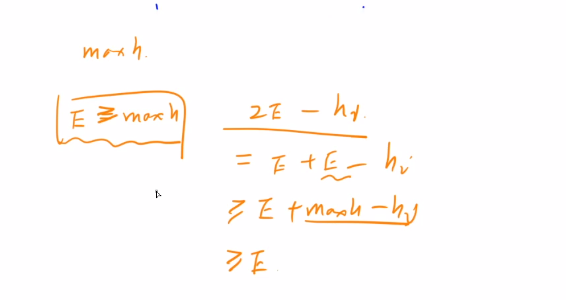 max h.
E ≥ max h
2E - hi
= E + E - hi
≥ E + maxh - hi
≥ E